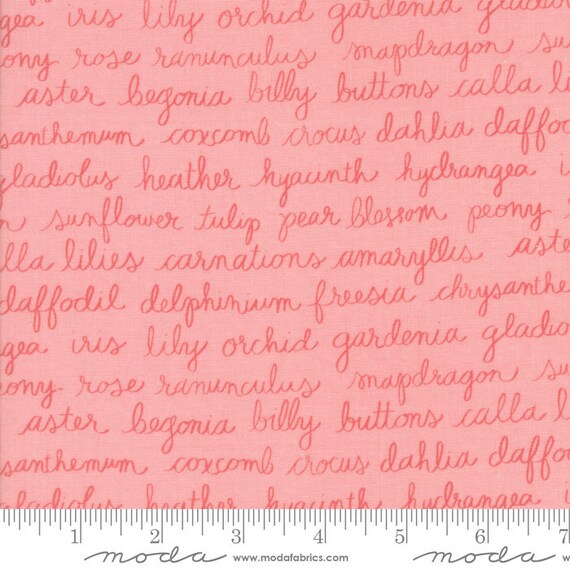 gea iris lily orchid gardenia gladiolu
ony rose ranunculus snapdragon su
aster begonia billy buttons calla li
santhemum coxcomb crocus dahlia daffod
gladiolus heather hyacinth hydrangea i
n sunflower tulip pear blossom peony
lla lilies carnations amaryllis aste
daffodil delphinium freesia chrysanthe
gea iris lily orchid gardenia gladio
ony rose ranunculus snapdragon su
aster begonia billy buttons calla l
santhemum coxcomb crocus dahlia daffo
gladiolus heather hyacinth hydrangea i
1 2 3 4 5 6 7
moda www.modafabrics.com moda www.modafabrics.com